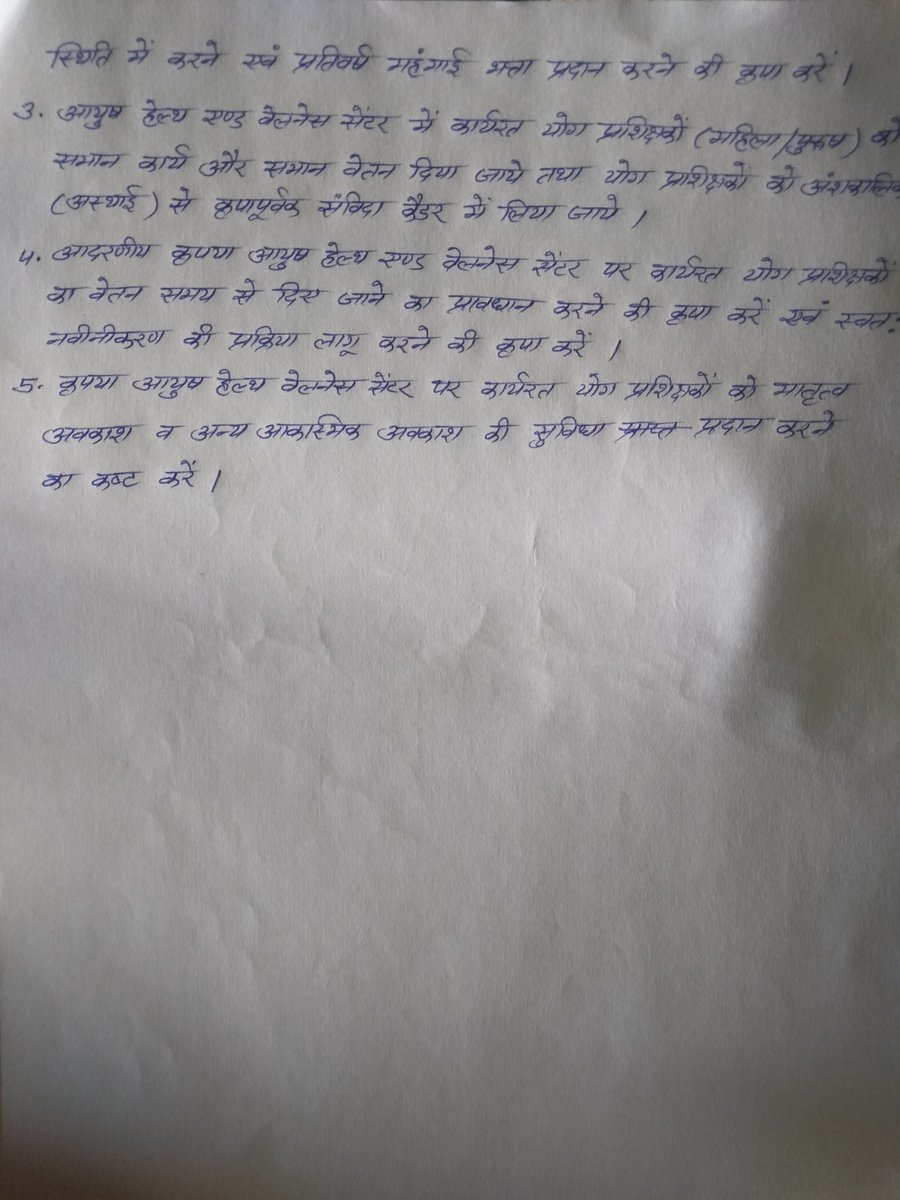 स्थिति में करने एवं प्रतिवर्ष महंगाई भत्ता प्रदान करने की कृपा करें ।
3. आयुष हेल्थ एण्ड वेलनेस सेंटर में कार्यरत योग प्रशिक्षकों (महिला/पुरुष) को
समान कार्य और समान वेतन दिया जाये तथा योग प्रशिक्षकों को अंशकालिक
(अस्थाई) से कृपापूर्वक संविदा कैडर में लिया जाये ।
4. आदरणीय कृपया आयुष हेल्थ एण्ड वेलनेस सेंटर पर कार्यरत योग प्रशिक्षकों
का वेतन समय से दिए जाने का प्रावधान करने की कृपा करें एवं स्वतः
नवीनीकरण की प्रक्रिया लागू करने की कृपा करें ।
5. कृपया आयुष हेल्थ वेलनेस सेंटर पर कार्यरत योग प्रशिक्षकों को मातृत्व
अवकाश व अन्य आकस्मिक अवकाश की सुविधा प्राप्त प्रदान करने
का कष्ट करें ।